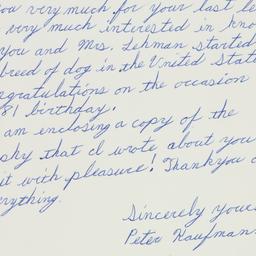 ou very much for your last le
very much interested in kno
you and Mrs. Lehman started
breed of dog in the United Stat
ngratulations on the occasion
81 birthday.
am enclosing a copy of the
sky that I wrote about you
it with pleasure! Thankyou
erything.
Sincerely your
Peter Kaufman